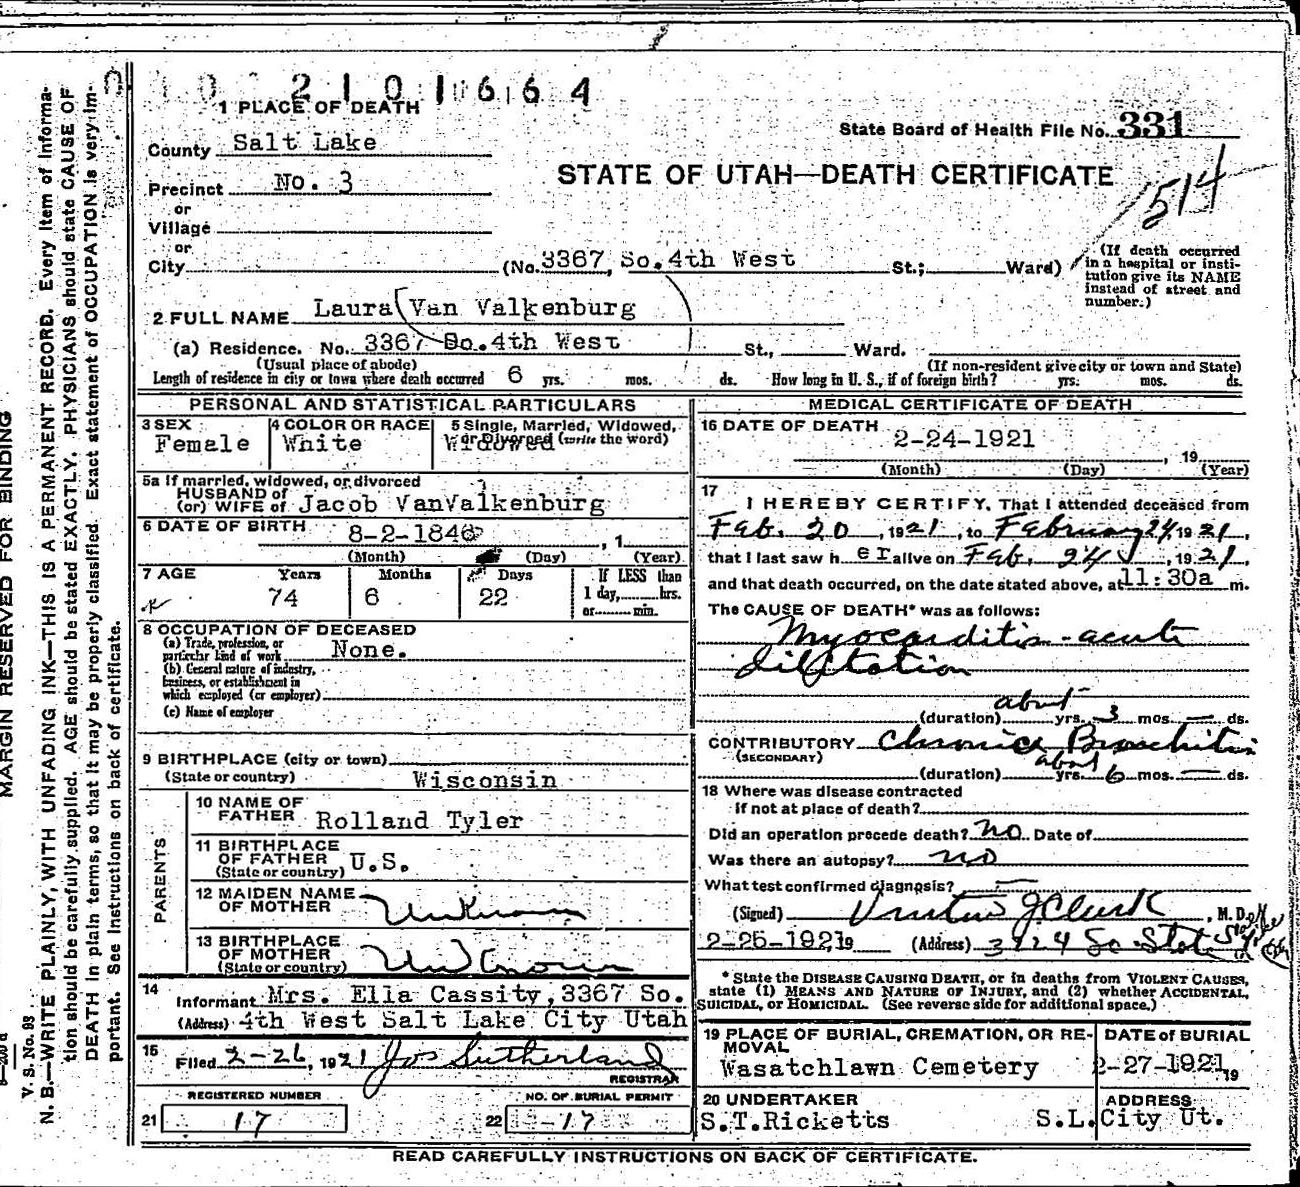 2101664
1 PLACE OF DEATH
State Board of Health File No. 331
County Salt Lake
STATE OF UTAH—DEATH CERTIFICATE
1514
Precinct No. 3
or
Village
or
City (No. 3367 So. 4th West St.; Ward)
(If death occurred in a hospital or institution give its NAME instead of street and number.)
2 FULL NAME Laura Van Valkenburg
(a) Residence. No. 3367 So. 4th West St., Ward.
(Usual place of abode) (If non-resident give city or town and State)
Length of residence in city or town where death occurred 6 yrs. mos. ds. How long in U. S., if of foreign birth? yrs. mos. ds.
PERSONAL AND STATISTICAL PARTICULARS
3 SEX Female
4 COLOR OR RACE White
5 Single, Married, Widowed, or Divorced (write the word) Widowed
5a If married, widowed, or divorced
HUSBAND of
(or) WIFE of Jacob VanValkenburg
6 DATE OF BIRTH 8-2-1846, 1
(Month) (Day) (Year)
7 AGE Years Months Days If LESS than
74 6 22 1 day, hrs.
or min.
8 OCCUPATION OF DECEASED
(a) Trade, profession, or
particular kind of work None.
(b) General nature of industry,
business, or establishment in
which employed (or employer)
(c) Name of employer
9 BIRTHPLACE (city or town)
(State or country) Wisconsin
PARENTS
10 NAME OF
FATHER Rolland Tyler
11 BIRTHPLACE
OF FATHER U.S.
(State or country)
12 MAIDEN NAME
OF MOTHER Unknown
13 BIRTHPLACE
OF MOTHER Unknown
(State or country)
14
Informant Mrs. Ella Cassity, 3367 So.
(Address) 4th West Salt Lake City Utah
15
Filed 2-26, 1921 Jos Sutherland
REGISTRAR
REGISTERED NUMBER
21 17
NO. OF BURIAL PERMIT
22 17
MEDICAL CERTIFICATE OF DEATH
16 DATE OF DEATH
2-24-1921, 19
(Month) (Day) (Year)
17
I HEREBY CERTIFY, That I attended deceased from
Feb. 20, 1921, to February 24, 1921,
that I last saw h er alive on Feb. 24, 1921,
and that death occurred, on the date stated above, at 11:30a m.
The CAUSE OF DEATH* was as follows:
Myocarditis - acute
dilitation
(duration) about yrs. 3 mos. — ds.
CONTRIBUTORY Chronic Bronchitis
(SECONDARY)
(duration) about yrs. 6 mos. — ds.
18 Where was disease contracted
if not at place of death?
Did an operation precede death? no. Date of
Was there an autopsy? no
What test confirmed diagnosis? —
(Signed) J. Clark, M. D.
2-25-1921, 19 (Address) 3424 So State St
* State the DISEASE CAUSING DEATH, or in deaths from VIOLENT CAUSES,
state (1) MEANS AND NATURE OF INJURY, and (2) whether ACCIDENTAL,
SUICIDAL, or HOMICIDAL. (See reverse side for additional space.)
19 PLACE OF BURIAL, CREMATION, OR REMOVAL
Wasatchlawn Cemetery
DATE of BURIAL
2-27-1921, 19
20 UNDERTAKER
S.T.Ricketts
ADDRESS
S.L. City Ut.
READ CAREFULLY INSTRUCTIONS ON BACK OF CERTIFICATE.
MARGIN RESERVED FOR BINDING
V. S. No. 93
N. B.—WRITE PLAINLY, WITH UNFADING INK—THIS IS A PERMANENT RECORD. Every item of information should be carefully supplied. AGE should be stated EXACTLY. PHYSICIANS should state CAUSE OF DEATH in plain terms, so that it may be properly classified. Exact statement of OCCUPATION is very important. See instructions on back of certificate.